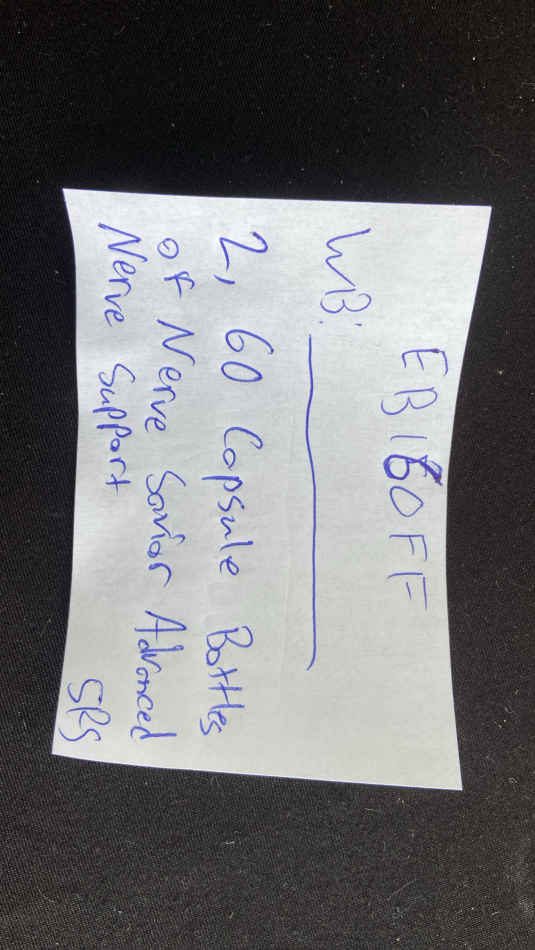 EB160FF
WB:
2, 60 Capsule Bottles
of Nerve Savior Advanced
Nerve Support
SRS